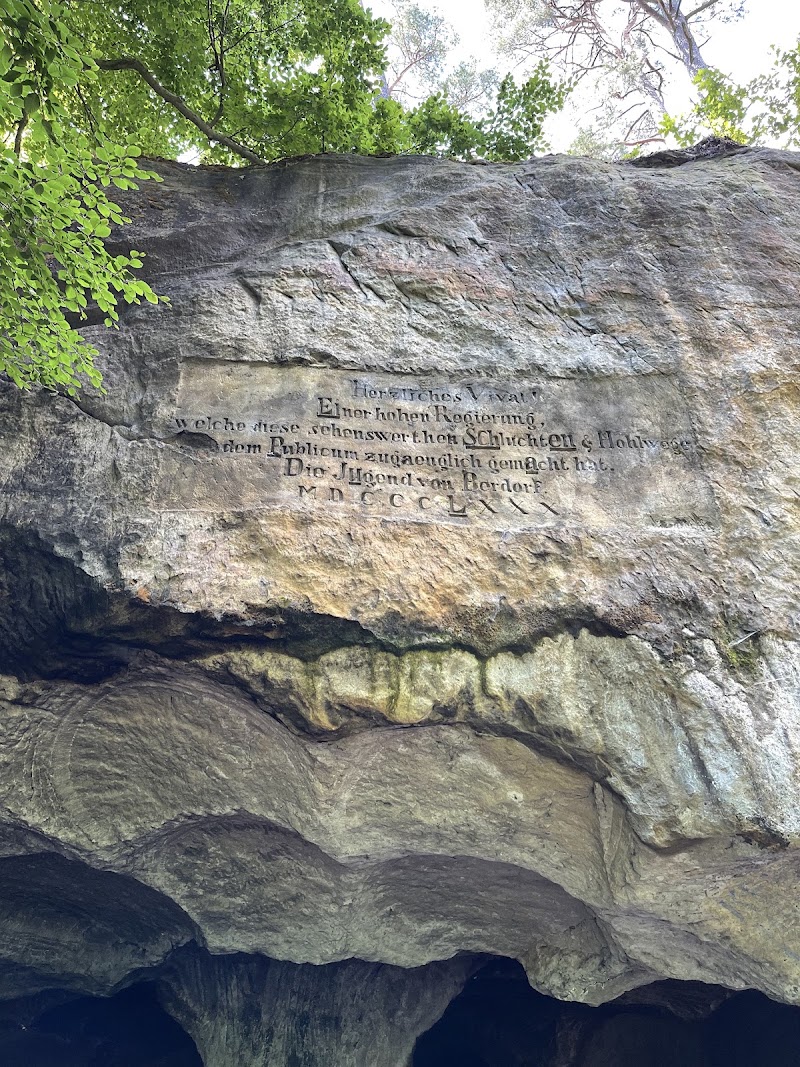 Herzliches Vivat!
Einer hohen Regierung,
welche diese sehenswerthen Schluchten & Hohlwege
dem Publicum zugaenglich gemacht hat.
Die Jugend von Berdorf.
MDCCCLXXX